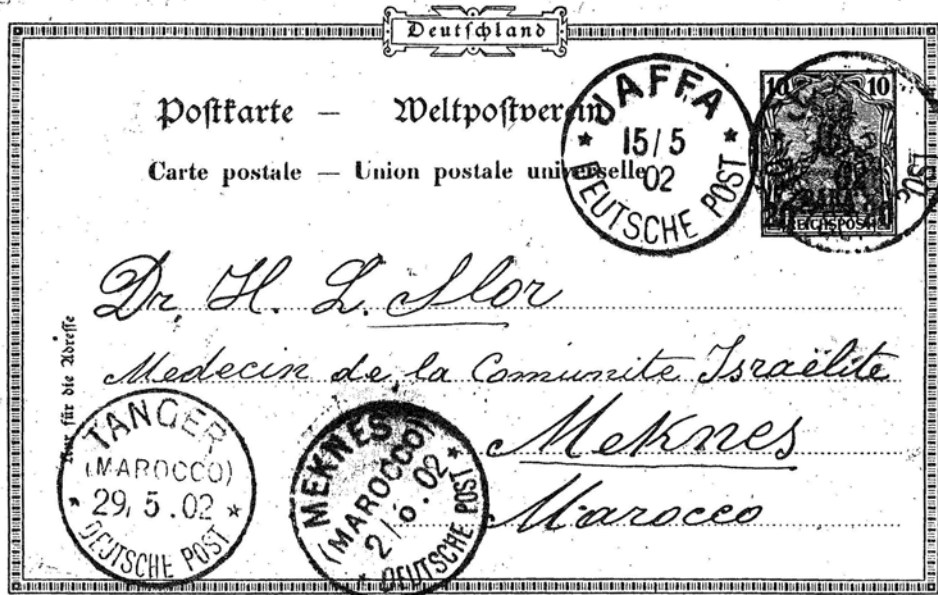 Deutschland
Postkarte – Weltpostverein
Carte postale – Union postale universelle
JAFFA
15/5
02
DEUTSCHE POST
10 10
REICHSPOST
Dr. H. L. Flor
Medecin de la Comunite Israëlite
Meknes
Marocco
Nur für die Adresse
TANGER
(MAROCCO)
29/5.02
DEUTSCHE POST
MEKNES
(MAROCCO)
2/6.02
DEUTSCHE POST